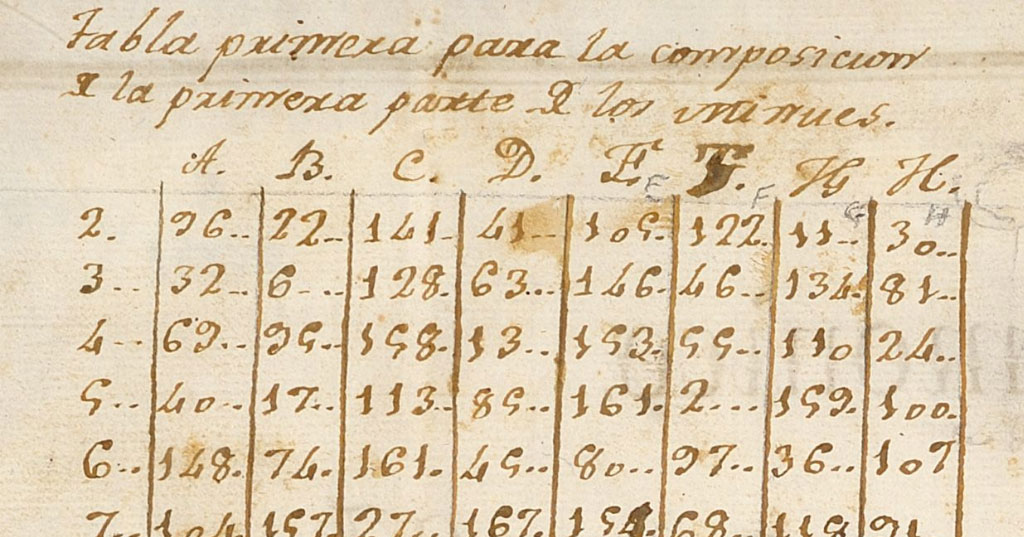 Tabla primera para la composicion
D la primera parte D los minues.
A. B. C. D. E. F. G H.
E F G H
2. 96.. 22.. 141. 41.. 105. 122. 11.. 30..
3.. 32.. 6... 128. 63... 146. 46... 134. 81..
4.. 69.. 95.. 158. 13.. 153. 55.. 110 24..
5.. 40.. 17.. 113.. 85.. 161. 2... 159. 100.
6.. 148. 74. 161. 45.. 80.. 97.. 36.. 107
7.. 104. 157. 27.. 167. 154. 68.. 118. 91..